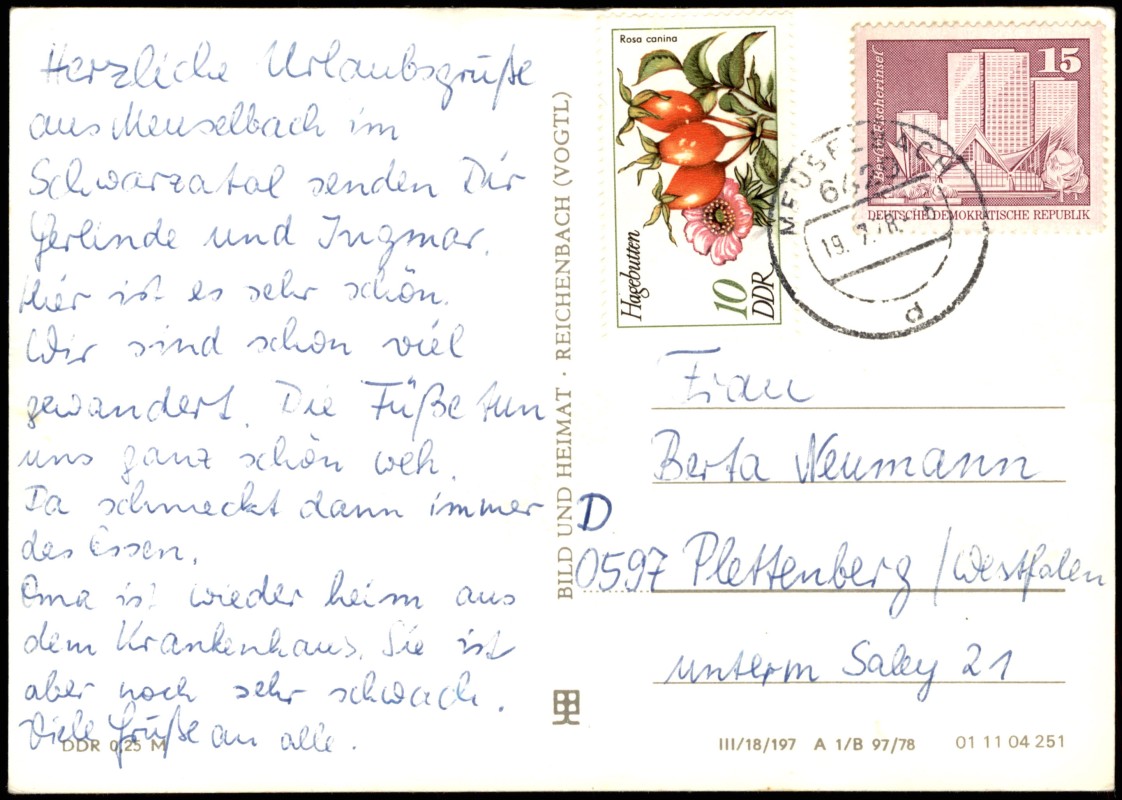 Herzliche Urlaubsgrüße
aus Meuselbach im
Schwarzatal senden Dir
Gerlinde und Ingmar.
Hier ist es sehr schön.
Wir sind schon viel
gewandert. Die Füße tun
uns ganz schön weh.
Da schmeckt dann immer
das Essen.
Oma ist wieder heim aus
dem Krankenhaus. Sie ist
aber noch sehr schwach.
Viele Grüße an alle.
DDR 0,25 M
BILD UND HEIMAT · REICHENBACH (VOGTL)
Rosa canina
Hagebutten
10
DDR
15
Berlin, Fischerinsel
DEUTSCHE DEMOKRATISCHE REPUBLIK
MEUSELBACH
d
Frau
Berta Neumann
D
0597 Plettenberg / Westfalen
unterm Saley 21
III/18/197 A 1/B 97/78 01 11 04 251